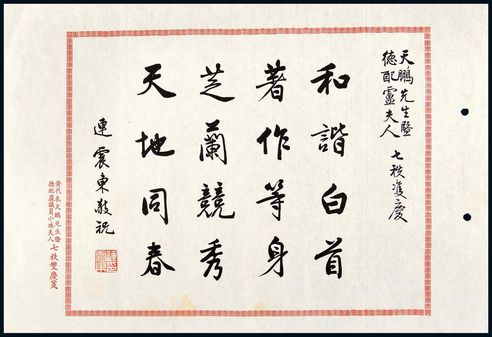 天鵬先生暨
德配盧夫人
七秩雙慶
和諧白首
著作等身
芝蘭競秀
天地同春
連震東敬祝
黃代表天鵬先生暨
德配盧議員小珠夫人
七秩雙慶箋